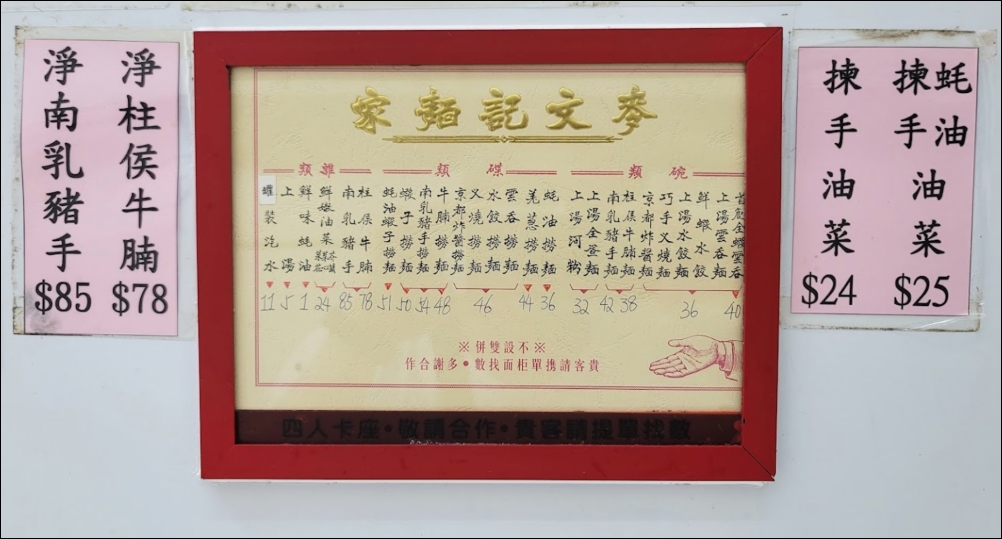 蚝油
揀手油菜
$25
揀手油菜
$24
麥文記麵家
碗類
首創全蝦雲吞
上湯雲吞麵
鮮蝦水餃
上湯水餃麵
巧手叉燒麵
京都炸醬麵
柱侯牛腩麵
南乳豬手麵
上湯全蛋麵
上湯河粉
40
36
38
42
32
碟類
蚝油撈麵
羌葱撈麵
雲吞撈麵
水餃撈麵
叉燒撈麵
京都炸醬撈麵
牛腩撈麵
南乳豬手撈麵
蝦子撈麵
蚝油蝦子撈麵
36
44
46
48
54
50
51
雜類
柱侯牛腩
南乳豬手
鮮嫩油菜
鮮味蚝油
上湯
罐裝汽水
78
85
24
1
5
11
※不設雙併※
貴客請携單柜面找數•多謝合作
四人卡座•敬請合作•貴客請提單找數
淨柱侯牛腩
$78
淨南乳豬手
$85